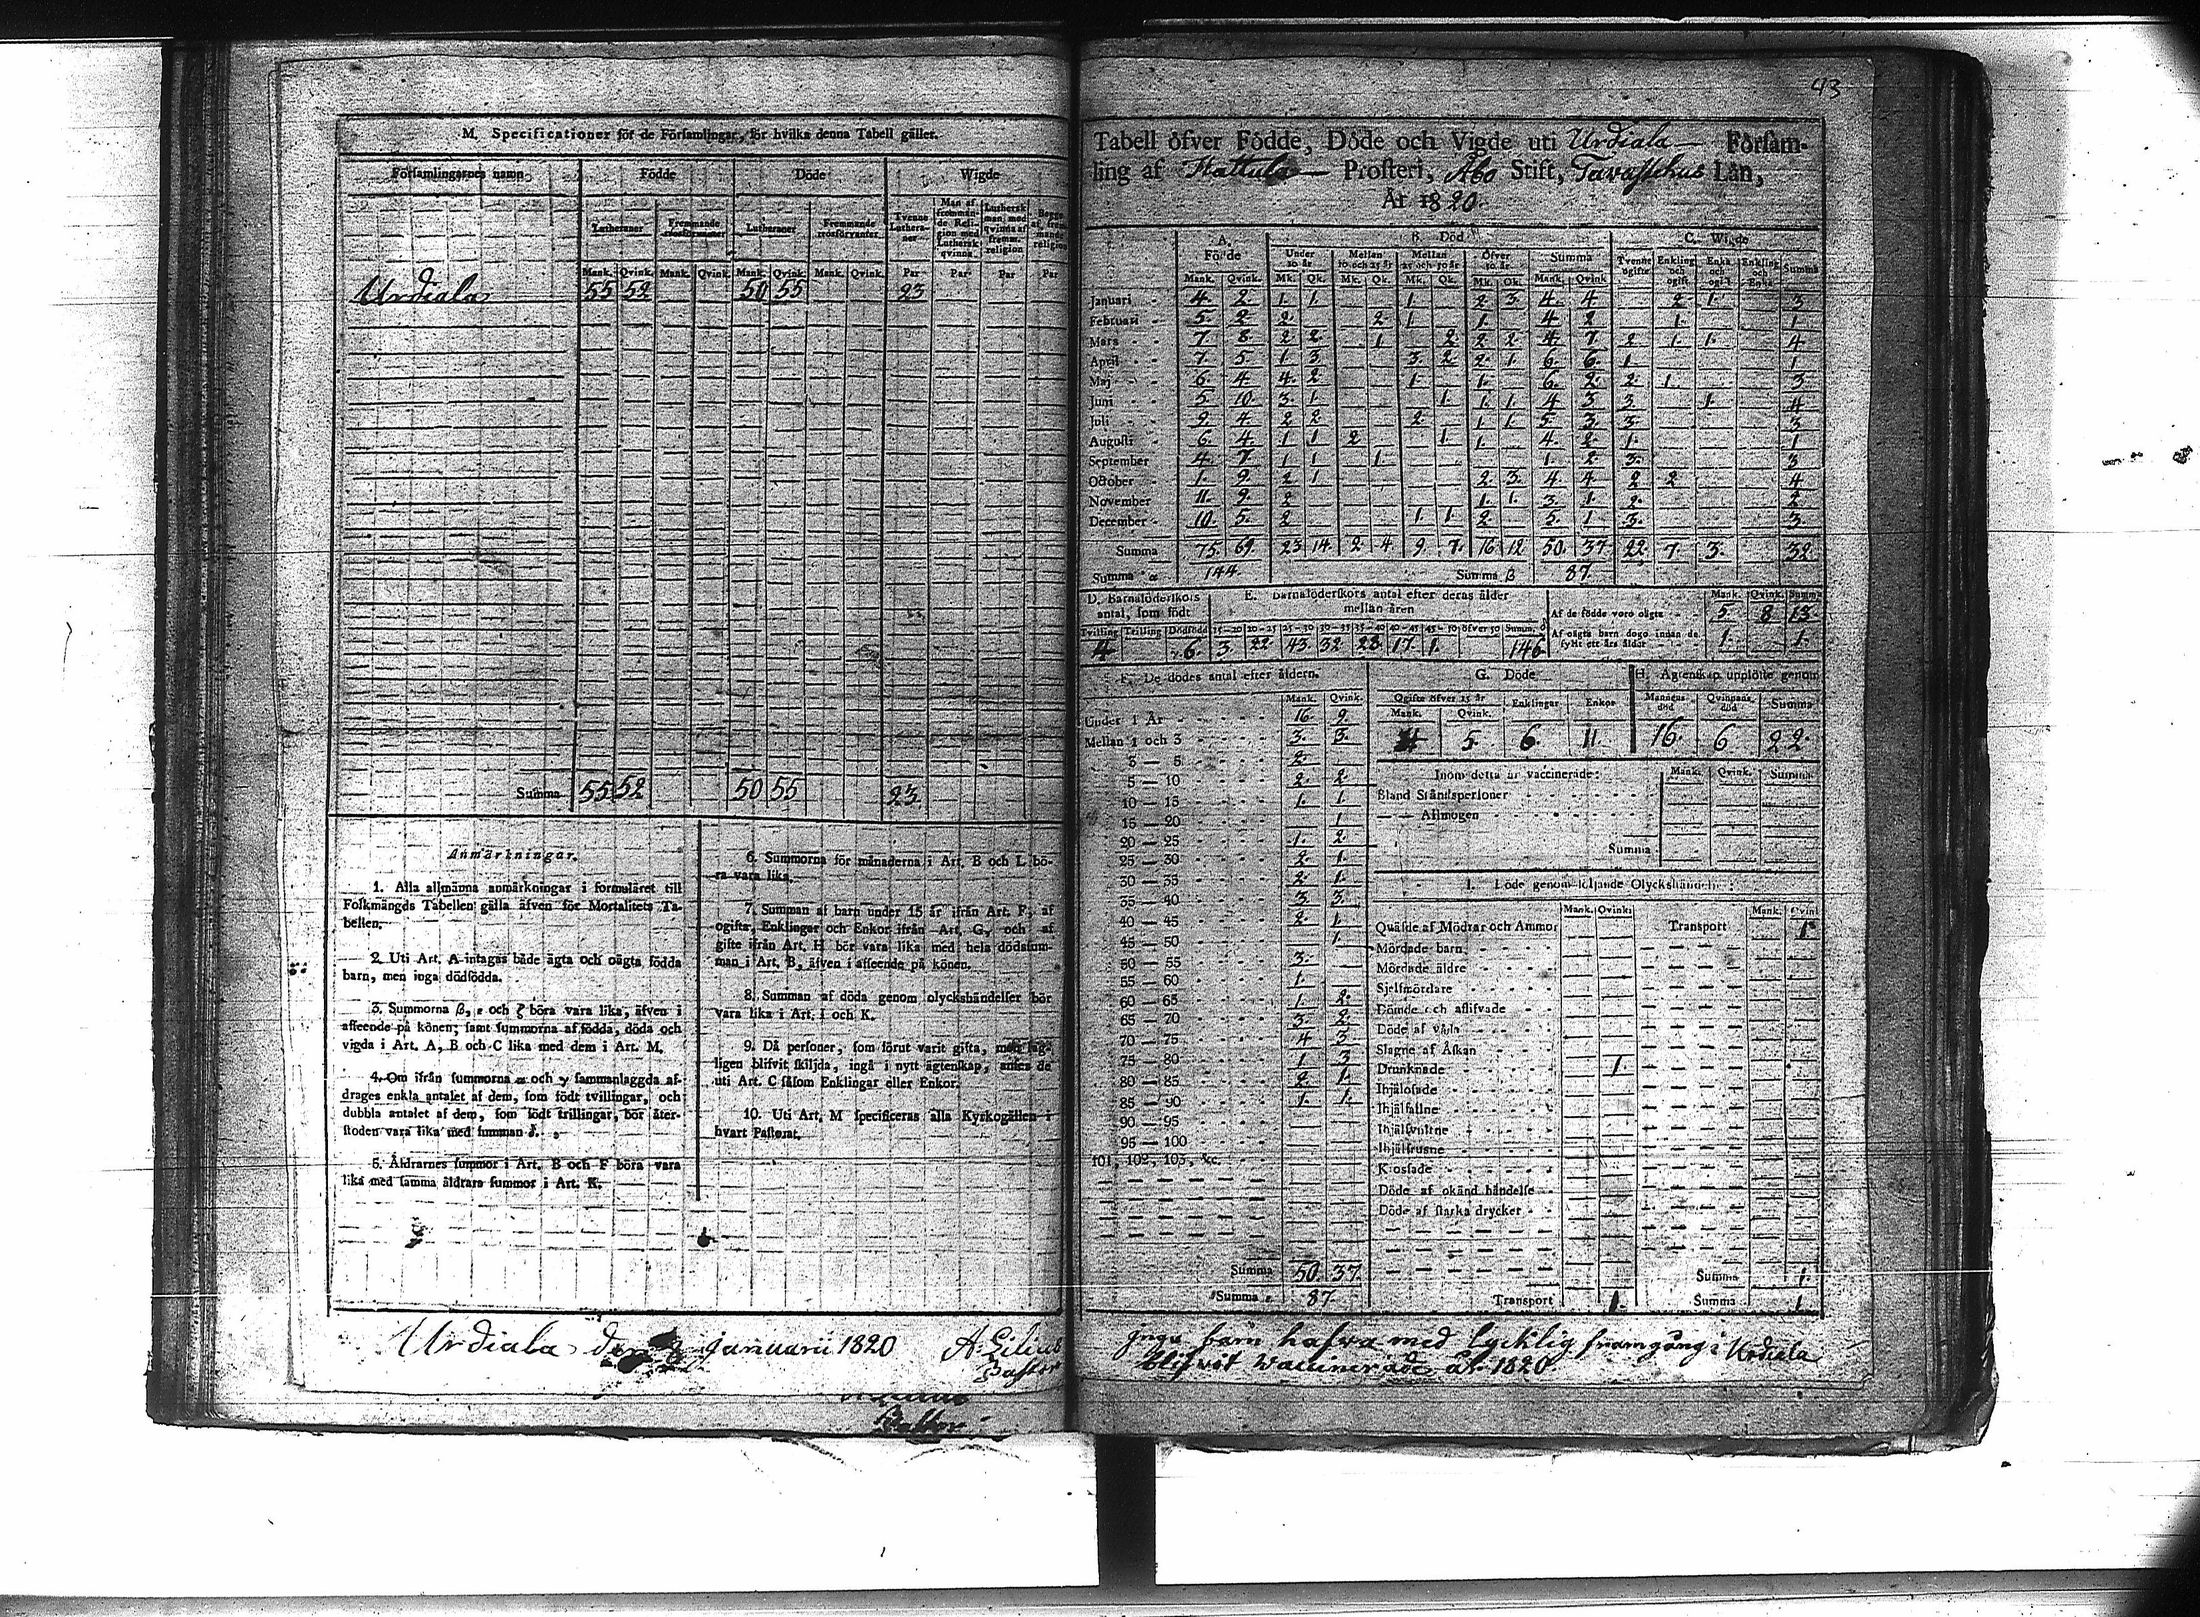 M. Specificationer för de Församlingar, för hvilka denna Tabell gäller.
Församlingarnes namn. Födde Döde Wigde
Lutheraner Fremmande trosförvanter Lutheraner Fremmande trosförvanter Tvenne Lutheraner Man af fremmande Religion med Luthersk qvinna. Luthersk man med qvinna af fremm. religion Begge af fremmande religion
Mank. Qvink. Mank. Qvink. Mank. Qvink. Mank. Qvink. Par Par Par Par
Urdiala 55 52 50 55 23
Summa 55 52 50 55 23
Anmärkningar.
1. Alla allmänna anmärkningar i formuläret till
Folkmängds Tabellen gälla äfven för Mortalitets Ta-
bellen.
2. Uti Art. A intagas både ägta och oägta födda
barn, men inga dödfödda.
3. Summorna β, ε och ζ böra vara lika, äfven i
afseende på könen; samt summorna af födda, döda och
vigda i Art. A, B och C lika med dem i Art. M.
4. Om ifrån summorna α och γ sammanlaggda af-
drages enkla antalet af dem, som födt tvillingar, och
dubbla antalet af dem, som födt trillingar, bör åter-
stoden vara lika med summan δ.
5. Åldrarnes summor i Art. B och F böra vara
lika med samma åldrars summor i Art. K.
6. Summorna för månaderna i Art. B och L bö-
ra vara lika.
7. Summan af barn under 15 år ifrån Art. F, af
ogifta, Enklingar och Enkor ifrån Art. G, och af
gifte ifrån Art. H bör vara lika med hela dödssum-
man i Art. B, äfven i afseende på könen.
8. Summan af döda genom olyckshändelser bör
vara lika i Art. I och K.
9. Då personer, som förut varit gifta, men lag-
ligen blifvit skiljda, ingå i nytt ägtenskap, antes de
uti Art. C såsom Enklingar eller Enkor.
10. Uti Art. M specificeras alla Kyrkogällen i
hvart Pastorat.
Urdiala den januarii 1820 A Lilius
Pastor
Pastor
43
Tabell öfver Födde, Döde och Vigde uti Urdiala Försam-
ling af Hattula Prosteri, Åbo Stift, Tavastehus Län,
År 1820.
A. Födde B. Död C. Wigde
Under 10 år Mellan 10 och 25 år Mellan 25 och 50 år Öfver 50 år Summa Tvenne ogifte Enkling och ogift Enka och ogift Enkling och Enka Summa
Mank. Qvink. Mk. Qk. Mk. Qk. Mk. Qk. Mk. Qk. Mank. Qvink
Januari 4. 2. 1. 1. 1. 2 3. 4. 4. 2 1. 3
Februari 5. 2 2. 2 1. 1. 4 2 1. 1.
Mars 7 8. 2 2. 1. 2 2 2 4 7 2 1. 1. 4
April 7 5. 1 3 3 2 2. 1 6 6. 1. 1
Maj 6. 4. 4. 2. 1. 1. 6. 2 2. 1. 3
Juni 5 10. 3. 1. 1. 1. 1 4 3 3 1. 4
Juli 9. 4. 2 2 2 1 1. 5. 3. 3. 3
Augusti 6. 4 1 1 2 1. 1. 4. 2 1. 1
September 4 7. 1 1 1. 1. 2. 3. 3
October 1. 9. 2 1 2. 3. 4 4. 2 2 4
November 11. 9. 2 1. 1. 3. 1. 2. 2
December 10. 5. 2 1. 1. 2. 5. 1 3. 3.
Summa 75. 69. 23 14. 2. 4 9. 7. 16 12 50. 37. 22. 7. 3. 32
Summa α 144. Summa β 87.
D. Barnaföderskors antal, som födt E. Barnaföderskors antal efter deras ålder mellan åren Mank. Qvink. Summa
Tvilling Trilling Dödfödd 15—20 20—25 25—30 30—35 35—40 40—45 45—50 öfver 50 Summ. δ
4 6. 3. 22. 43. 32 28. 17. 1. 146
Af de födde voro oägta 5. 8 13.
Af oägta barn dogo innan de fyllt ett års ålder 1. 1.
F. De dödes antal efter åldern.
Mank. Qvink.
Under 1 År 16 9.
Mellan 1 och 3 3. 3.
3 — 5 2.
5 — 10 2. 2
10 — 15 1. 1.
15 — 20 1
20 — 25 1. 2.
25 — 30 2. 1.
30 — 35 2. 1.
35 — 40 3 3.
40 — 45 2. 1.
45 — 50 1.
50 — 55 3.
55 — 60 1.
60 — 65 1. 2.
65 — 70 3. 2.
70 — 75 4 3
75 — 80 1 3
80 — 85 2. 1.
85 — 90 1. 1.
90 — 95
95 — 100
101, 102, 103, &c.
Summa 50. 37.
Summa ε 87.
G. Döde H. Ägtenskap upplöste genom
Ogifte öfver 15 år Enklingar Enkor Mannens död Qvinnans död Summa
Mank. Qvink.
5. 6. 11. 16. 6 22.
Inom detta år vaccinerade: Mank. Qvink. Summa
Bland Ståndspersoner
— — Allmogen
Summa
I. Döde genom följande Olyckshändelser:
Mank. Qvink. Mank. Qvink
Quäfde af Mödrar och Ammor Transport 1
Mördade barn
Mördade äldre
Sjelfmördare
Dömde och aflifvade
Döde af våda
Slagne af Åskan
Drunknade 1.
Ihjälofade
Ihjälfallne
Ihjälsvultne
Ihjälfrusne
Krossade
Döde af okänd händelse
Döde af starka drycker
Summa 1.
Transport 1. Summa 1.
Inga barn hafva med lycklig framgång i Urdiala
blifvit vaccinerade år 1820